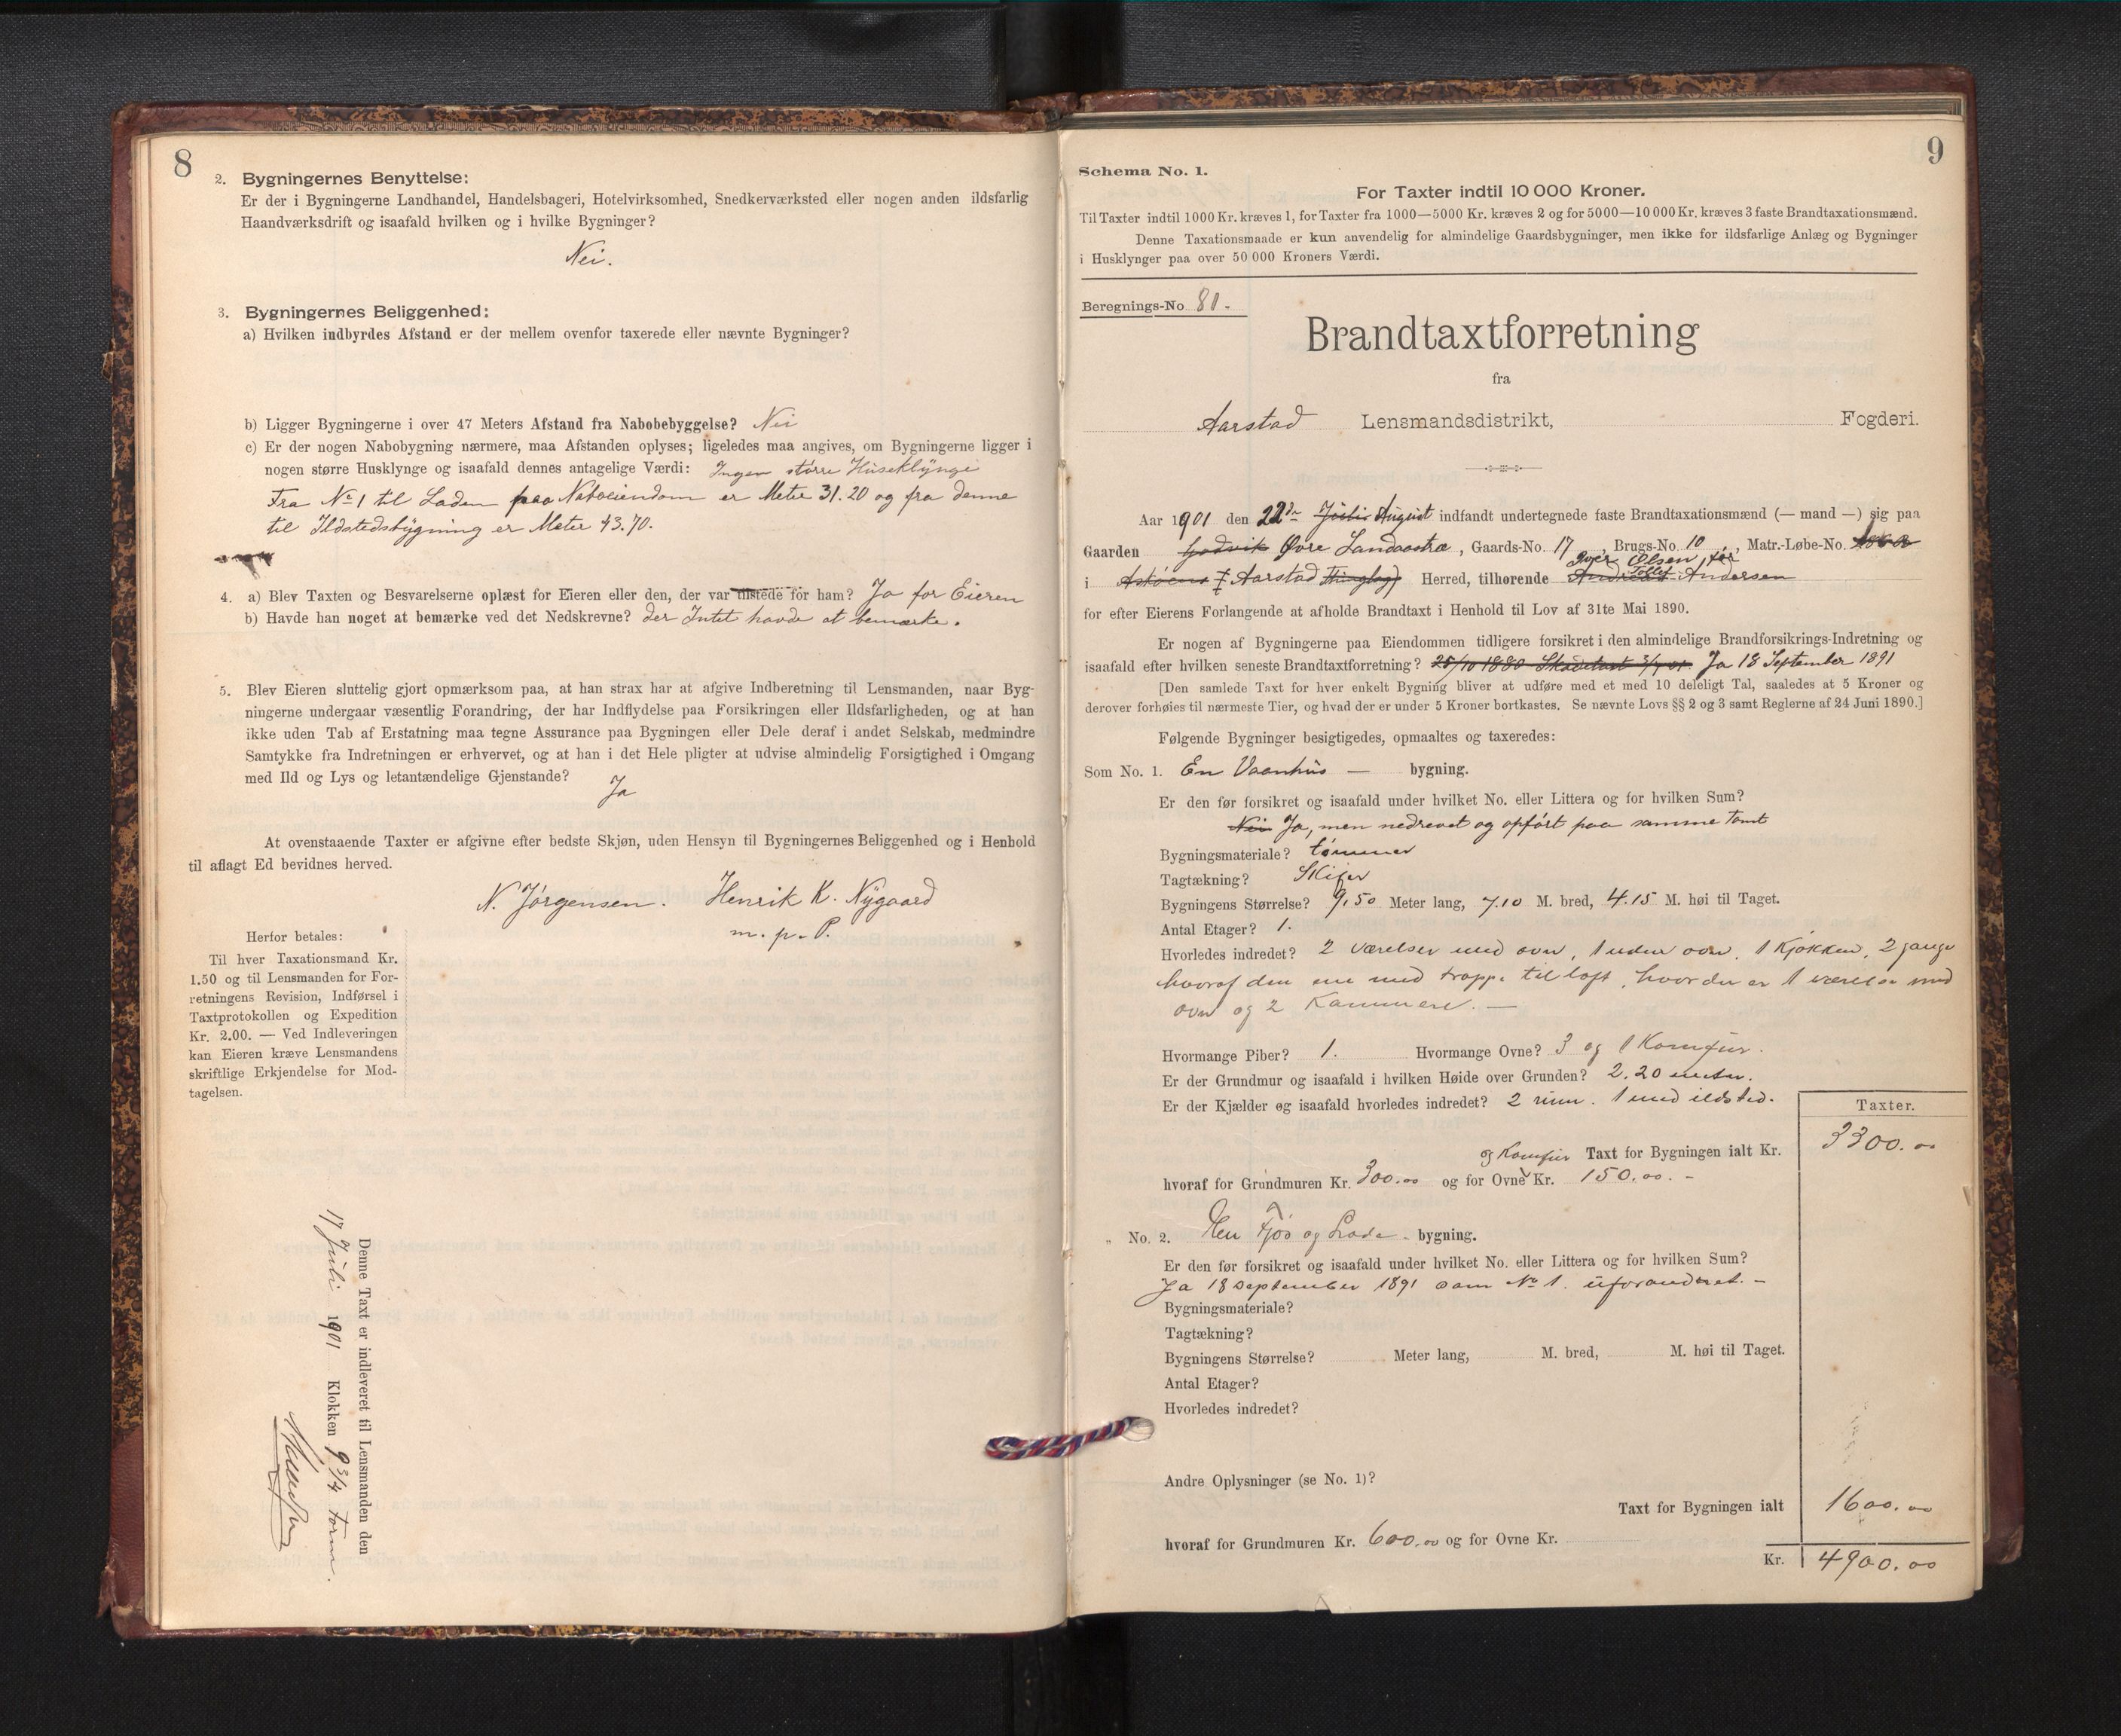 8
2. Bygningernes Benyttelse:
Er der i Bygningerne Landhandel, Handelsbageri, Hotelvirksomhed, Snedkerværksted eller nogen anden ildsfarlig
Haandværksdrift og isaafald hvilken og i hvilke Bygninger?
Nei.
3. Bygningernes Beliggenhed:
a) Hvilken indbyrdes Afstand er der mellem ovenfor taxerede eller nævnte Bygninger?
b) Ligger Bygningerne i over 47 Meters Afstand fra Nabobebyggelse? Nei
c) Er der nogen Nabobygning nærmere, maa Afstanden oplyses; ligeledes maa angives, om Bygningerne ligger i
nogen større Husklynge og isaafald dennes antagelige Værdi: Ingen større Huseklynge
Fra No 1 til Laden paa Naboeiendom er Meter 31.20 og fra denne
til Ildstedsbygning er Meter 43.70.
4. a) Blev Taxten og Besvarelserne oplæst for Eieren eller den, der var tilstede for ham? Ja for Eieren
b) Havde han noget at bemærke ved det Nedskrevne? der Intet havde at bemærke.
5. Blev Eieren sluttelig gjort opmærksom paa, at han strax har at afgive Indberetning til Lensmanden, naar Byg-
ningerne undergaar væsentlig Forandring, der har Indflydelse paa Forsikringen eller Ildsfarligheden, og at han
ikke uden Tab af Erstatning maa tegne Assurance paa Bygningen eller Dele deraf i andet Selskab, medmindre
Samtykke fra Indretningen er erhvervet, og at han i det Hele pligter at udvise almindelig Forsigtighed i Omgang
med Ild og Lys og letantændelige Gjenstande?
Ja
At ovenstaaende Taxter er afgivne efter bedste Skjøn, uden Hensyn til Bygningernes Beliggenhed og i Henhold
til aflagt Ed bevidnes herved.
N. Jørgensen. Henrik K. Nygaard
m. p. P.
Herfor betales:
Til hver Taxationsmand Kr.
1.50 og til Lensmanden for For-
retningens Revision, Indførsel i
Taxtprotokollen og Expedition
Kr. 2.00. — Ved Indleveringen
kan Eieren kræve Lensmandens
skriftlige Erkjendelse for Mod-
tagelsen.
Denne Taxt er indleveret til Lensmanden den
17 Juli 1901 Klokken 9 3/4 Form.
9
Schema No. 1.
For Taxter indtil 10 000 Kroner.
Til Taxter indtil 1000 Kr. kræves 1, for Taxter fra 1000—5000 Kr. kræves 2 og for 5000—10 000 Kr. kræves 3 faste Brandtaxationsmænd.
Denne Taxationsmaade er kun anvendelig for almindelige Gaardsbygninger, men ikke for ildsfarlige Anlæg og Bygninger
i Husklynger paa over 50 000 Kroners Værdi.
Beregnings-No 81.
Brandtaxtforretning
fra
Aarstad Lensmandsdistrikt, Fogderi.
Aar 1901 den 22de Juli August indfandt undertegnede faste Brandtaxationsmænd (— mand —) sig paa
Gaarden Godvik Øvre Landaastræ, Gaards-No. 17, Brugs-No. 10, Matr.-Løbe-No.
i Askøens Aarstad Thinglag) Herred, tilhørende Iver Olsen før Andreas Tollef Andersen
for efter Eierens Forlangende at afholde Brandtaxt i Henhold til Lov af 31te Mai 1890.
Er nogen af Bygningerne paa Eiendommen tidligere forsikret i den almindelige Brandforsikrings-Indretning og
isaafald efter hvilken seneste Brandtaxtforretning? 25/10 1880 Skadetaxt 3/7 01 Ja 18 September 1891
[Den samlede Taxt for hver enkelt Bygning bliver at udføre med et med 10 deleligt Tal, saaledes at 5 Kroner og
derover forhøies til nærmeste Tier, og hvad der er under 5 Kroner bortkastes. Se nævnte Lovs §§ 2 og 3 samt Reglerne af 24 Juni 1890.]
Følgende Bygninger besigtigedes, opmaaltes og taxeredes:
Som No. 1. En Vaanhus — bygning.
Er den før forsikret og isaafald under hvilket No. eller Littera og for hvilken Sum?
Nei Ja, men nedrevet og opført paa samme Tomt
Bygningsmateriale? tømmer
Tagtækning? Skifer
Bygningens Størrelse? 9,50 Meter lang, 7.10 M. bred, 4.15 M. høi til Taget.
Antal Etager? 1.
Hvorledes indredet? 2 værelser med ovn, 1 uden ovn, 1 Kjøkken, 2 gange
hvoraf den ene med trappe til loft, hvor der er 1 værelse med
ovn og 2 Kammere. —
Hvormange Piber? 1. Hvormange Ovne? 3 og 1 Komfur.
Er der Grundmur og isaafald i hvilken Høide over Grunden? 2.20 meter.
Er der Kjælder og isaafald hvorledes indredet? 2 rum. 1 med ildsted.
Taxter.
og Komfur Taxt for Bygningen ialt Kr. 3300.00
hvoraf for Grundmuren Kr. 300.00 og for Ovne Kr. 150.00. -
„ No. 2. En Fjøs og Lade - bygning.
Er den før forsikret og isaafald under hvilket No. eller Littera og for hvilken Sum?
Ja 18 september 1891 som No 1. uforandret. -
Bygningsmateriale?
Tagtækning?
Bygningens Størrelse? Meter lang, M. bred, M. høi til Taget.
Antal Etager?
Hvorledes indredet?
Andre Oplysninger (se No. 1)?
Taxt for Bygningen ialt 1600.00
hvoraf for Grundmuren Kr. 600.00 og for Ovne Kr.
Kr. 4900.00